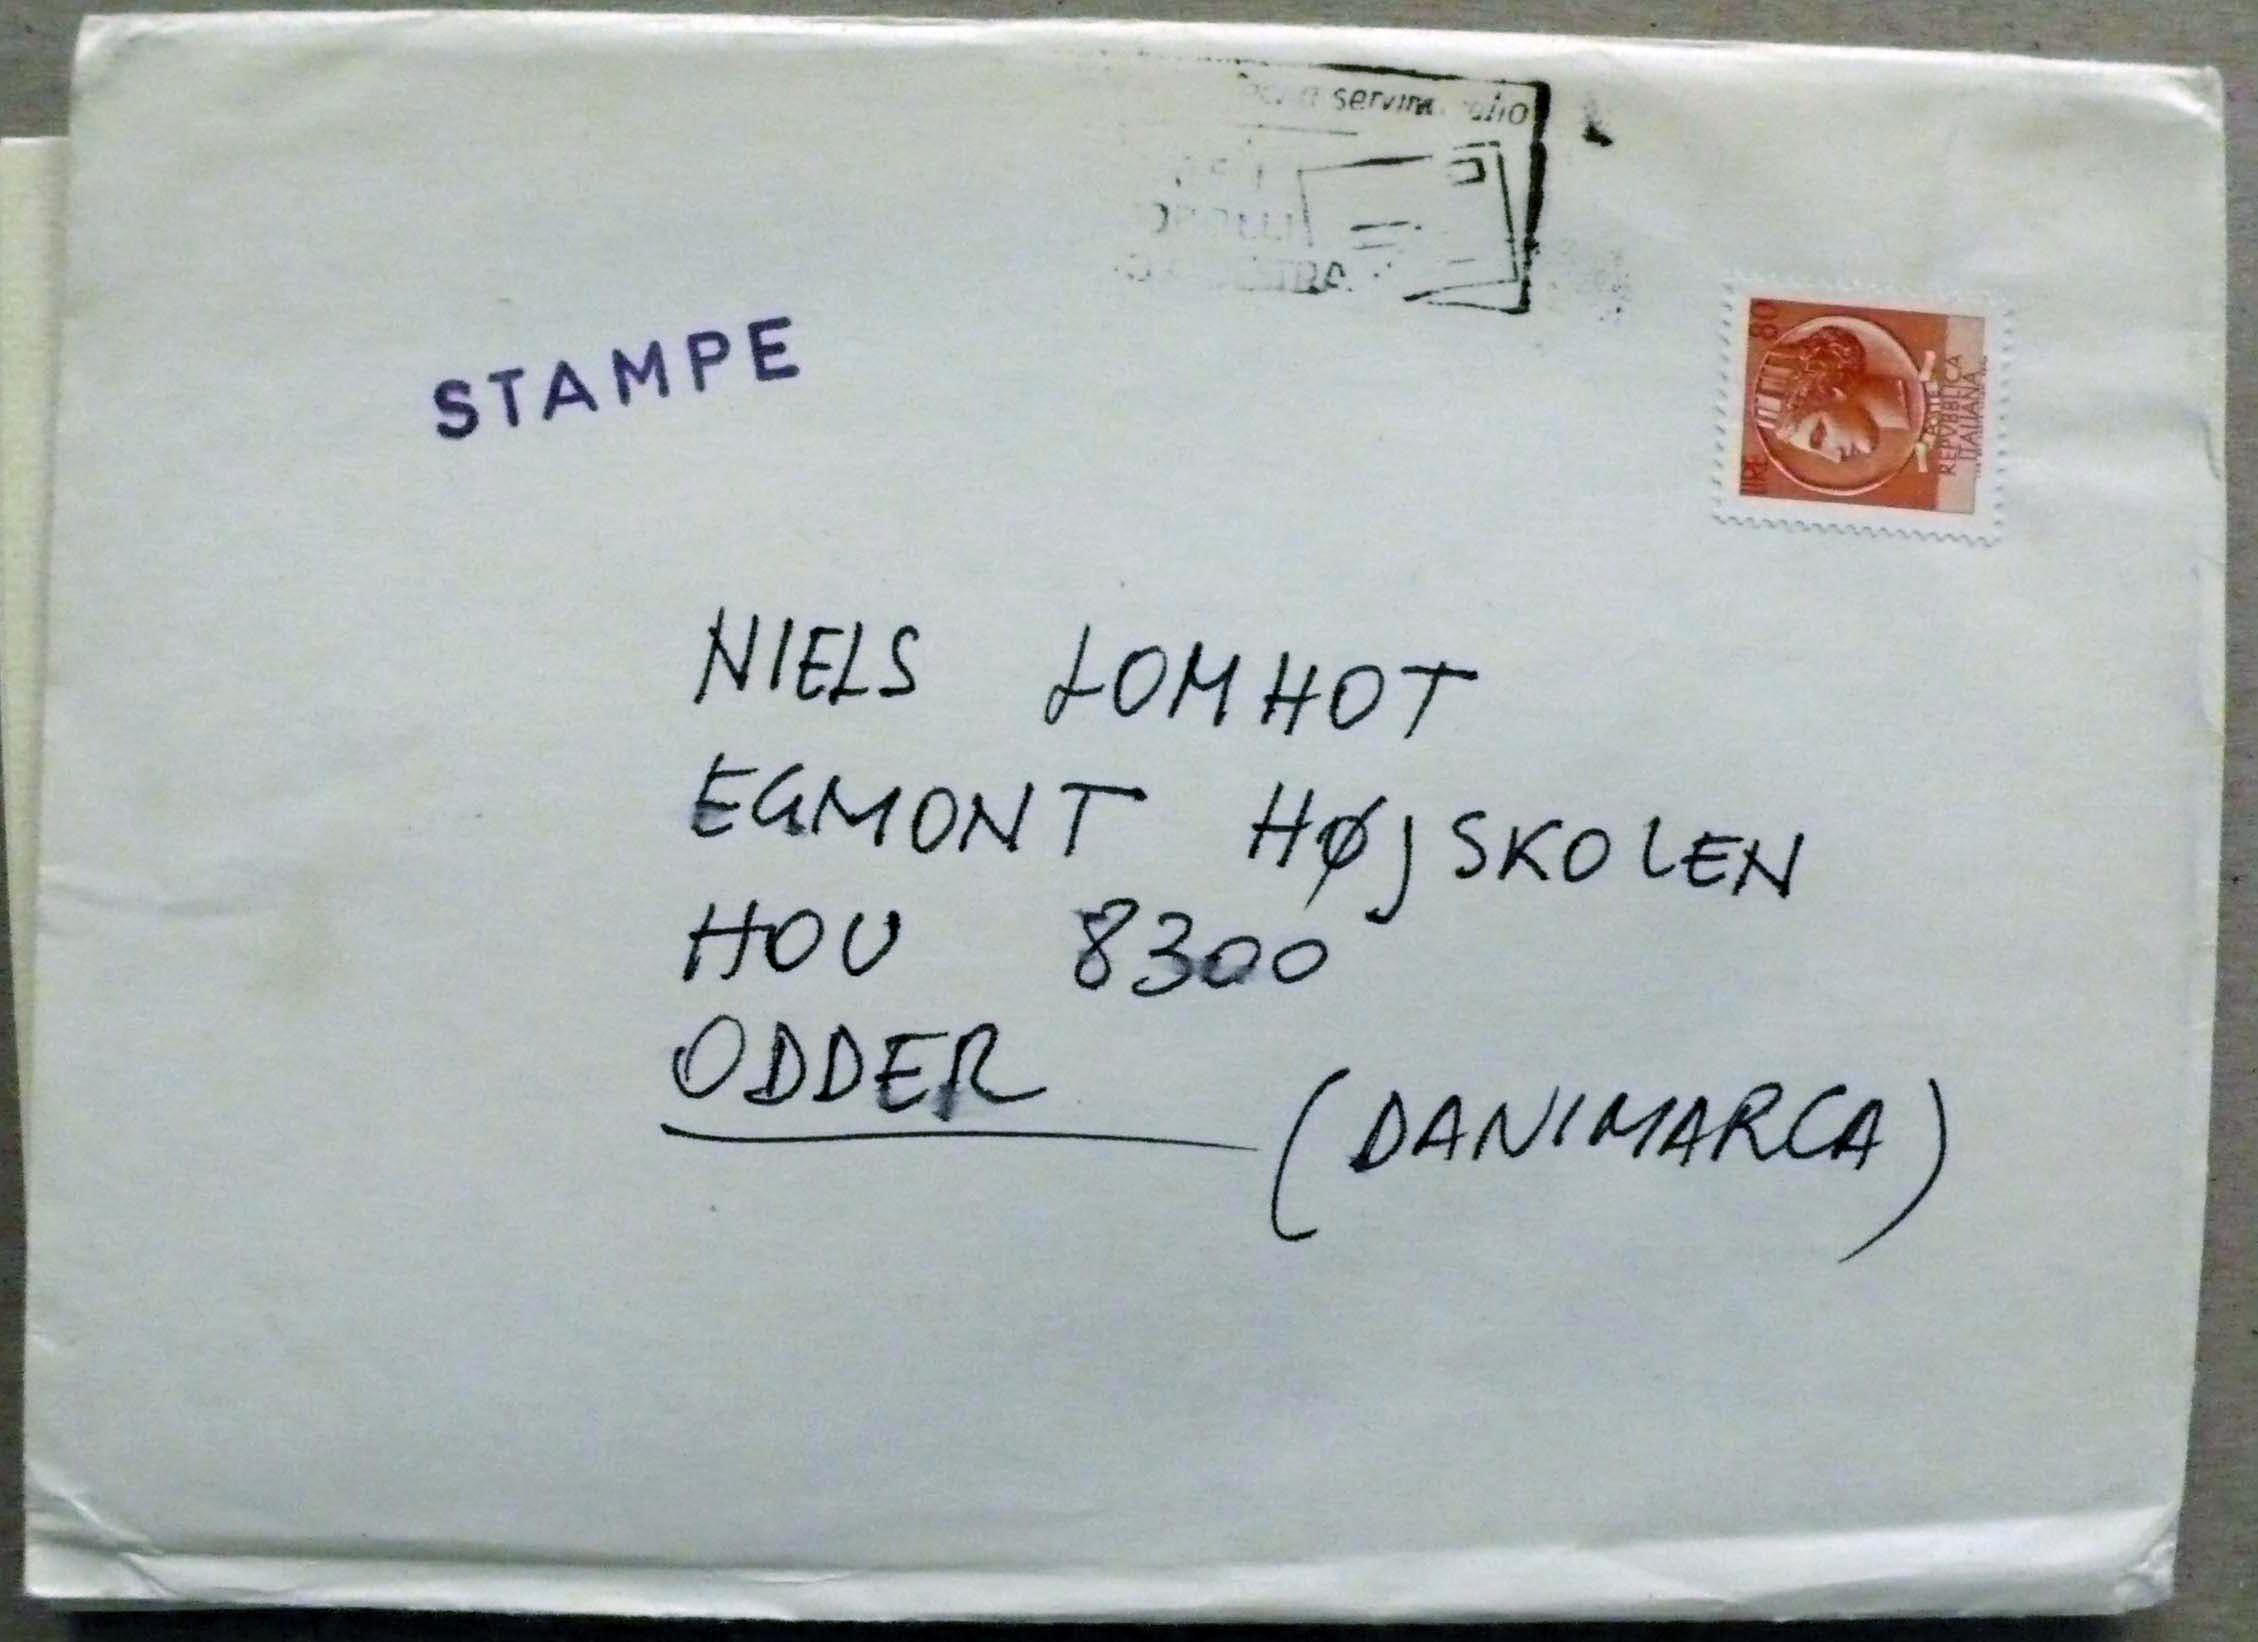 servir
STAMPE
LIRE 80
REPVBBLICA
ITALIANA
NIELS LOMHOT
EGMONT HØJSKOLEN
HOU 8300
ODDER
(DANIMARCA)